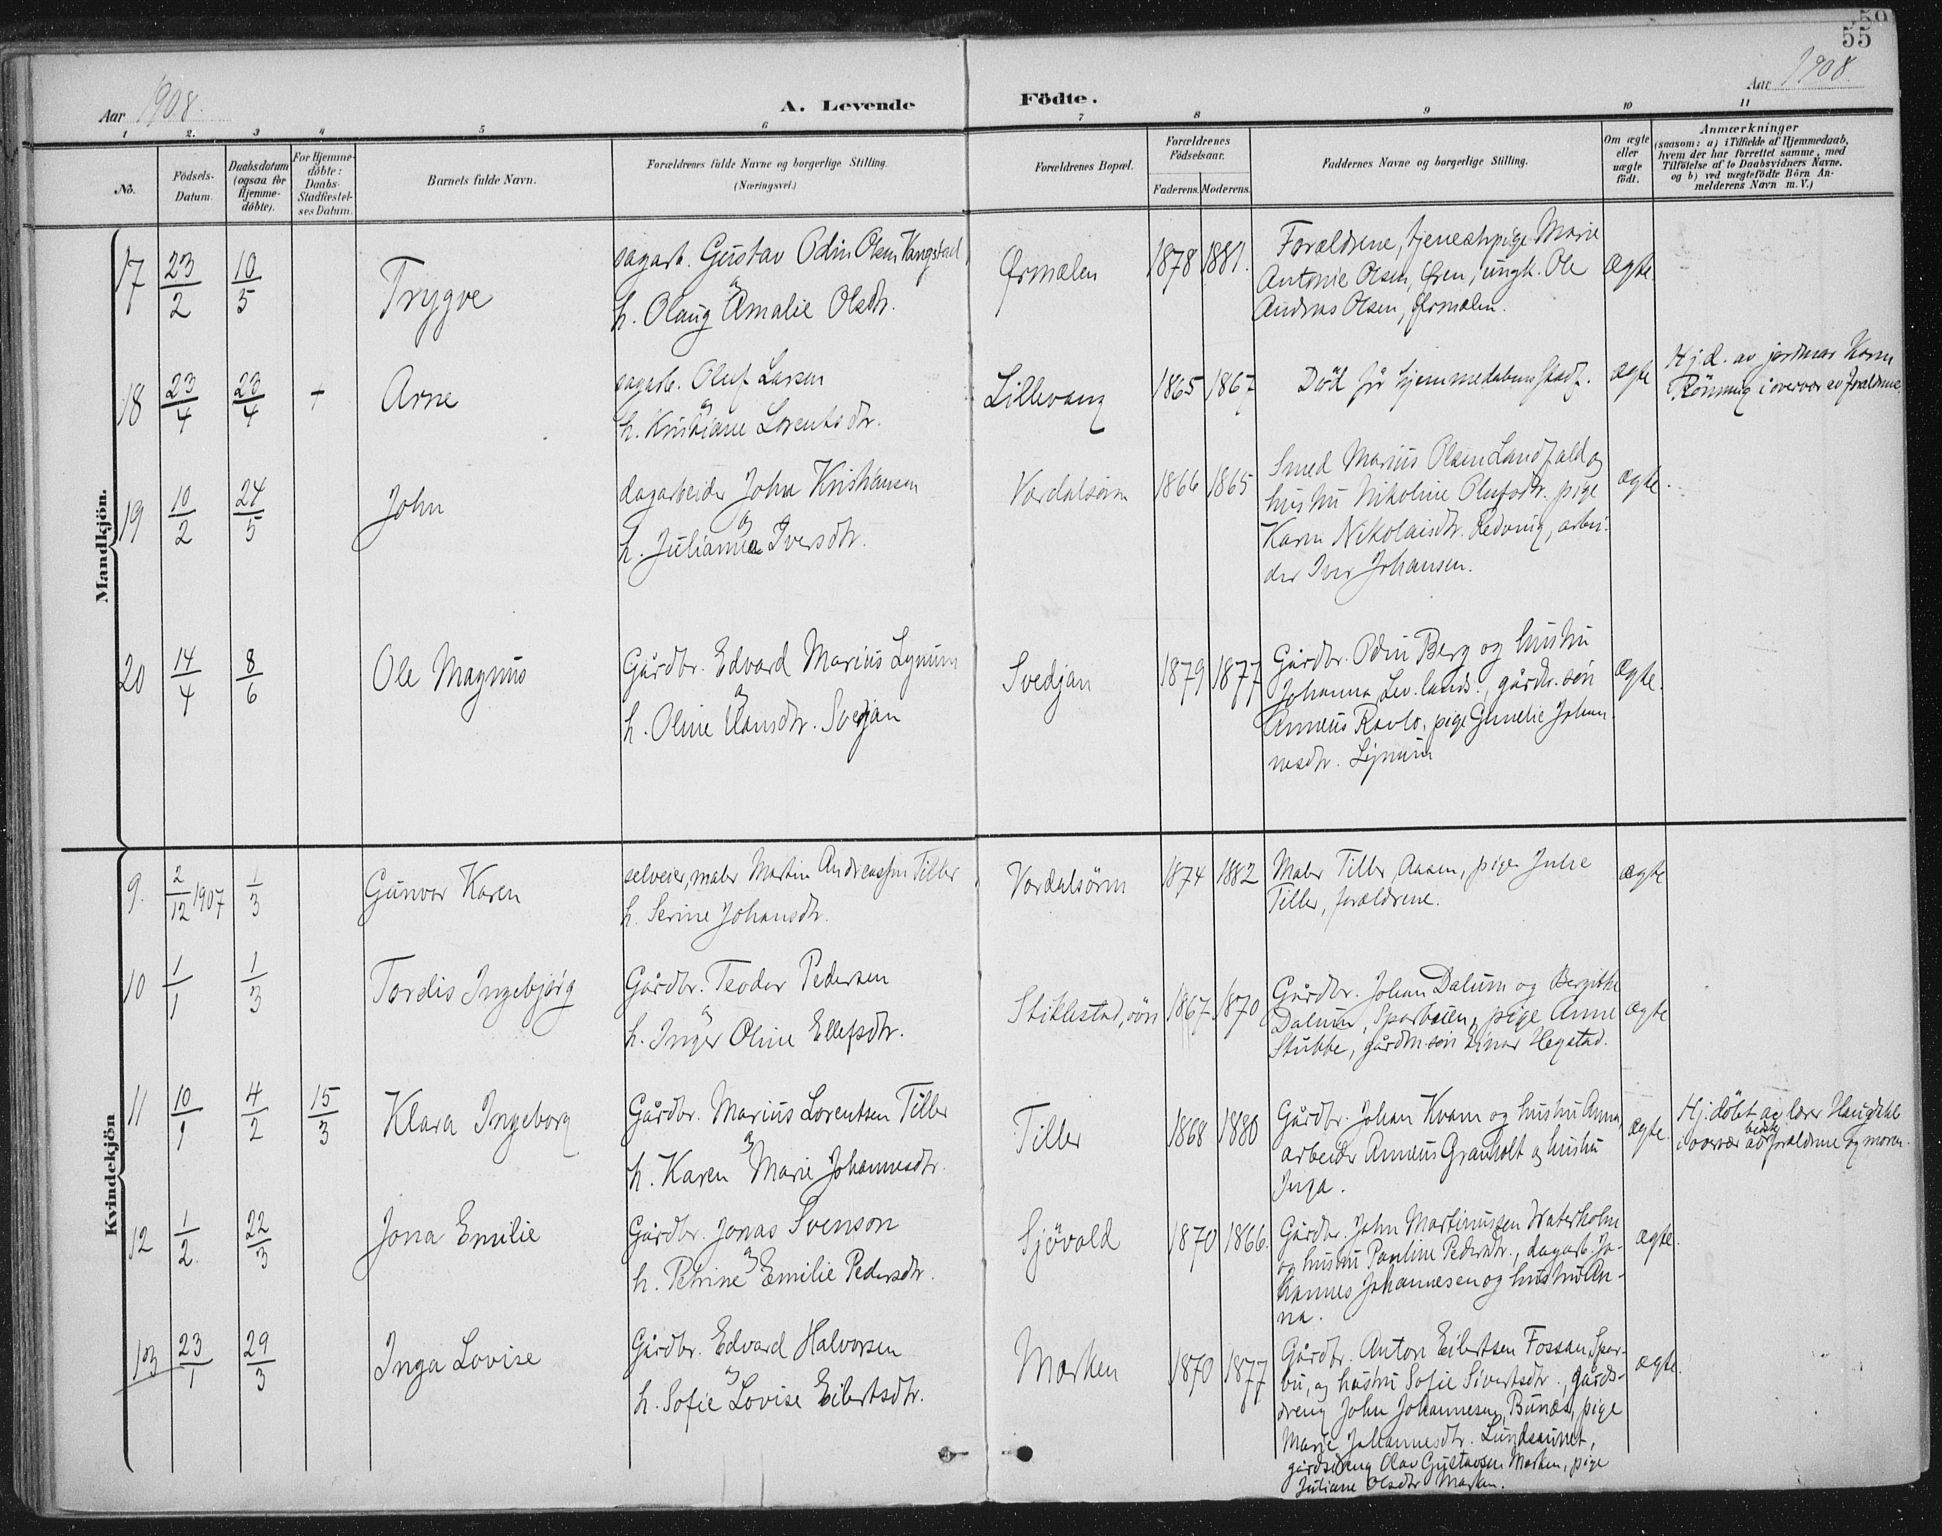 59
55
Aar 1908.
A. Levende
Födte.
Aar 1908.
1
2.
3
4
5
6
7
8
9
10
11
No.
Födsels-
Datum.
Daabsdatum
(ogsaa for
Hjemme-
döbte).
For Hjemme-
döbte:
Daabs-
Stadfæstel-
ses Datum.
Barnets fulde Navn.
Forældrenes fulde Navne og borgerlige Stilling.
(Næringsvei.)
Forældrenes Bopæl.
Forældrenes
Födselsaar.
Faderens.
Moderens.
Faddernes Navne og borgerlige Stilling.
Om ægte
eller
uægte
födt.
Anmærkninger
(saasom: a) i Tilfælde af Hjemmedaab,
hvem der har forrettet samme, med
Tilföielse af to Daabsvidners Navne.
og b) ved uægtefödte Börn An-
melderens Navn m. V.)
Mandkjön.
17
23/2
10/5
Trygve
sagarb. Gustav Odin Olsen Vangstad
og
h. Olaug Amalie Olsdtr.
Ørmælen
1878
1881.
Forældrene, tjenestepige Marie
Antonie Olsen, Øren, ungk. Ole
Andreas Olsen, Ørmælen.
ægte.
18
23/4
23/4
+
Arne
sagarb. Oluf Larsen
og
h. Kristiane Lorentsdtr.
Lillevang
1865
1867
Död för hjemmedaabens stadf.
ægte
Hj.d. av jordmor Karen
Rönning i overvær av forældrene.
19
10/2
24/5
John
dagarbeider John Kristiansen
og
h. Julianna Iversdtr.
Værdalsören
1866
1865
Smed Marius Olsen Landfald og
hustru Nikoline Olufsdtr. pige
Karen Nikolaisdtr. , arbei-
der Iver Johansen.
ægte.
20
14/4
8/6
Ole Magnus
Gårdbr. Edvard Marius Lynum
og
h. Oline Hansdtr. Svedjan
Svedjan
1879
1877
Gårdbr. Odin Berg og hustru
Johanna, Lev.lands., gårdbr.sön
Anneus Ravlo, pige Johan-
nesdtr. Lynum
ægte.
Kvindekjön
9.
2/12 1907
1/3
Gunvor Karen
selveier, maler Martin Andreassen Tiller
h. Serine Johansdtr.
Værdalsören
1874
1882
Maler Tiller Aasen, pige Julie
Tiller, forældrene.
ægte
10
1/1
1/3
Tordis Ingebjörg
Gårdbr. Teodor Pedersen
og
h. Inger Oline Ellefsdtr.
Stiklestad, övre
1867.
1870
Gårdbr. Johan Dalum og Bergithe
Dalum, Sparbuen, pige Anne
Stubbe, gårdm.sön Einar Hegstad.
ægte
11
10/1
4/2
15/3
Klara Ingeborg
Gårdbr. Marius Lorentsen Tiller
og
h. Karen Marie Johannesdtr.
Tiller
1868
1880
Gårdbr. Johan Kvam og hustru Anna,
arbeider Anneus Granholt og hustru
Inga.
ægte.
Hj.döbt av lærer Haugdahl
begge
i overvær av forældrene og moren.
12
1/2.
22/3
Jona Emilie
Gårdbr. Jonas Svenson
og
h. Petrine Emilie Pedersdtr.
Sjövold
1870
1866.
Gårdbr. John Martinussen Waterholm
og hustru Pauline Pedersdtr., dagarb. Jo-
hannes Johannesen og hustru An-
na.
ægte.
13
23/1
29/3
Inga Lovise
Gårdbr. Edvard Halvorsen
og
h. Sofie Lovise Eilertsdtr.
Marken
1870
1877
Gårdbr. Anton Eilertsen Fossan Spar-
bu, og hustru Sofie Sivertsdtr., gårds-
dreng John Johannesen, Bunæs, pige
Marie Johannesdtr. Lundsaunet,
gårdsdreng Olav Gustavsen Marken, pige
Juliane Olsdtr Marken.
ægte.